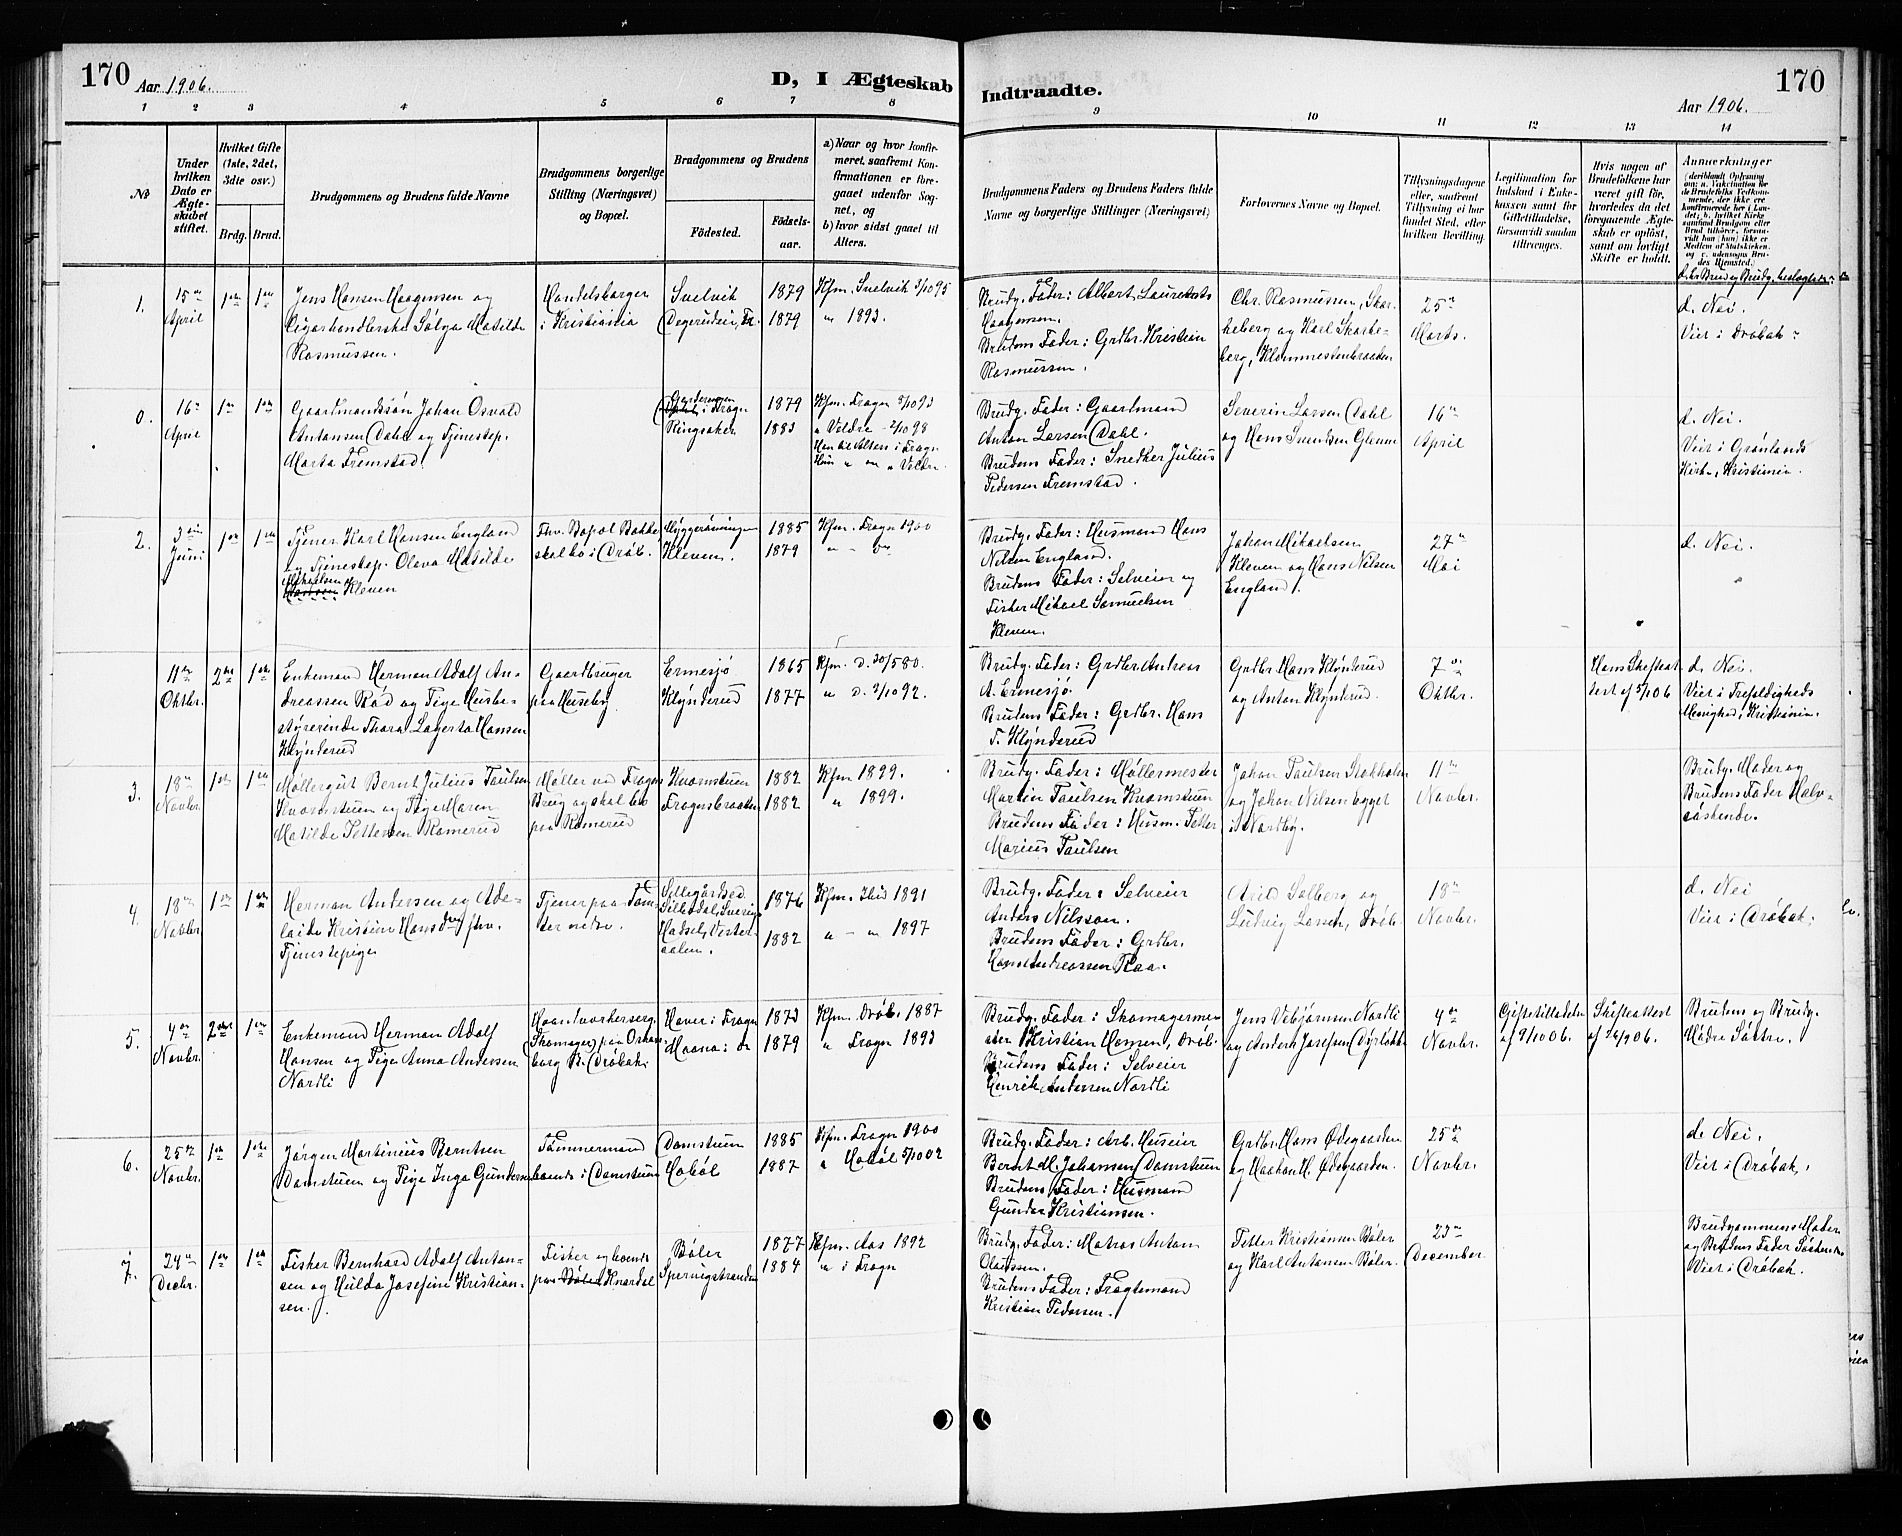 170
Aar 1906.
D, I Ægteskab
Indtraadte.
170
Aar 1906.
1 2 3 4 5 6 7 8 9 10 11 12 13 14
No
Under hvilken Dato er Ægteskabet stiftet.
Hvilket Gifte (1ste, 2det, 3die osv.)
Brdg. Brud.
Brudgommens og Brudens fulde Navne
Brudgommens borgerlige Stilling (Næringsvei) og Bopæl.
Brudgommens og Brudens
Fødested.
Fødselsaar.
a) Naar og hvor konfirmeret, saafremt Konfirmationen er foregaaet udenfor Sognet, og
b) hvor sidst gaaet til Alters.
Brudgommens Faders og Brudens Faders fulde Navne og borgerlige Stillinger (Næringsvei)
Forlovernes Navne og Bopæl.
Tillysningsdagene eller, saafremt Tillysning ei har fundet Sted, efter hvilken Bevilling.
Legitimation for Indskud i Enkekassen samt for Giftetilladelse, forsaavidt saadan tiltrænges.
Hvis nogen af Brudefolkene har været gift før, hvorledes da det foregaaende Ægteskab er opløst, samt om lovligt Skifte er holdt.
Anmerkninger
1.
15de April
1ste
1ste
Jens Hansen Haagensen og
Cigarhandlerske Sølga Matilde
Rasmussen.
Handelsborger
i Kristiania
Svelvik
Degerudein, Fr.
1879
1879
Kfm. Svelvik 3/10 95
" 1893.
Brudg. Fader: Albert Laurentius
Haagensen.
Brudens Fader: Grdbr. Kristian
Rasmussen.
Chr. Rasmussen, Skar-
heberg og Karl Skarke-
berg, Klommestenbraaden
25de
Marts.
d. Nei.
Viet i Drøbak
0.
16de
April
1ste
1ste
Gaardmandssøn Johan Osvald
Antonsen Dahl og Tjenestep.
Marta Fremstad.
i Frogn
Ringsaker
1879
1883
Kfm. Frogn 8/10 93
" Veldre 2/10 98
Han til Alters i Frogn
Hun " " " Veldre
Brudg. Fader: Gaardmand
Anton Larsen Dahl.
Brudens Fader: Snedker Julius
Pedersen Fremstad.
Severin Larsen Dahl
og Hans Svendsen Glenne
16de
April
d. Nei.
Viet i Grønlands
Kirke, Kristiania.
2.
3die
Juni
1ste
1ste
Tjener Karl Hansen England
og Tjenestep. Oleva Matilde
Mikaelsen
Kleven
Fhv. Bopæl Bakke
skal bo i Drøb.
Myggeråsningen
Kleven.
1885
1879
Kfm. Frogn 1900
" - "
Brudg. Fader: Husmand Hans
Nilsen England.
Brudens Fader: Selveier og
Fisker Mikael Samuelsen
Kleven.
Johan Mikaelsen
Kleven og Hans Nilsen
England.
27de
Mai
d. Nei.
11te
Oktbr.
2det
1ste
Enkemand Herman Adolf An-
dreassen Rød og Pige Husbe-
styrerinde Thora Lagerta Hansen
Klynderud
Gaardbruger
paa Huseby
Ermesjø
Klynderud
1865
1877
Kfm. D. 30/5 80.
" D. 2/10 92.
Brudg. Fader: Grdbr. Andreas
A. Ermesjø.
Brudens Fader: Grdbr. Hans
T. Klynderud
Grdbr. Hans Klynderud
og Anton Klynderud.
7de
Oktbr.
Hans Skifteat-
test af 5/10 06
d. Nei.
Viet i Trefoldigheds
Menighed, Kristiania.
3.
18de
Novbr.
1ste
1ste
Møllergut Bernt Julius Paulsen
Kvarnstuen og Pige Maren
Matilde Pettersen Ramerud
Møller ved Frogns
Brug og skal bo
paa Ramerud
Kvarnstuen
Frognsbraaten
1882
1882
Kfm 1899.
" 1899.
Brudg. Fader: Møllermester
Martin Paulsen Kvarnstuen
Brudens Fader: Husm. Petter
Marius Paulsen
Johan Paulsen Stokholm
og Johan Nilsen Egget
i Nordby.
11te
Novbr.
Brudg. Moder og
Brudens Fader Halv-
søskende.
4.
18de
Novbr.
1ste
1ste
Herman Andersen og Ade-
laide Kristine Hansd. fhv.
Tjenestepige
Tjener paa Dam-
Sillegårdsed
Sillbodal, Sverige
Hadsel, Vester-
aalen.
1876
1882
Kfm. Ibid 1891
" - " 1897
Brudg. Fader: Selveier
Anders Nilsson.
Brudens Fader: Grdbr.
Hans Andreassen Raa.
Arid Solberg og
Ludvig Larsen, Drøb.
18de
Novbr.
d. Nei
Viet i Drøbak.
5.
4de
Novbr.
2det
1ste
Enkemand Herman Adolf
Hansen og Pige Anna Andersen
Nordli
Haandverkersvg.
(Skomager) paa Oskars-
borg St. (Drøbak)
Haver i Frogn
Maana i do
1873
1879
Kfm. Drøb. 1887
" Frogn 1893
Brudg. Fader: Skomagerme-
ster Kristian Hansen, Drøb.
Brudens Fader: Selveier
Henrik Andersen Nordli
Jens Vebjørnsen Nordli
og Anders Josefsen Dyrløkke
4de
Novbr.
Giftetilladelse
af 9/10 06.
Skifteattest
af 26/9 06.
Brudens og Brudg.
Mødre Søstre.
6.
25de
Novbr.
1ste
1ste
Jørgen Martinius Berntsen
Damstuen og Pige Inga Gundersen
Tømmermand
boende i Damstuen
Damstuen
Hobøl
1885
1887
Kfm. Frogn 1900
" Hobøl 5/10 02
Brudg. Fader: Arb. Huseier
Bernt M. Johansen Damstuen
Brudens Fader: Husmand
Gunder Kristiansen.
Grdbr. Hans Ødegaarden
og Haakon H. Ødegaarden.
25de
Novbr.
d. Nei.
Viet i Drøbak.
7.
24de
Decbr.
1ste
1ste
Fisker Bernhard Adolf Anton-
sen og Hilda Josefine Kristian-
sen.
Fisker og boende
paa Bøler Knardal
Bøler
Spervigstranden
1877
1884
Kfm. Aas 1892
" i Frogn
Brudg. Fader: Matros Anton
Olaussen.
Brudens Fader: Fragtemand
Kristian Pedersen.
Petter Kristiansen Bøler
og Karl Antonsen Bøler.
23de
December
Brudgommens Moder
og Brudens Fader Søskende.
Viet i Drøbak.